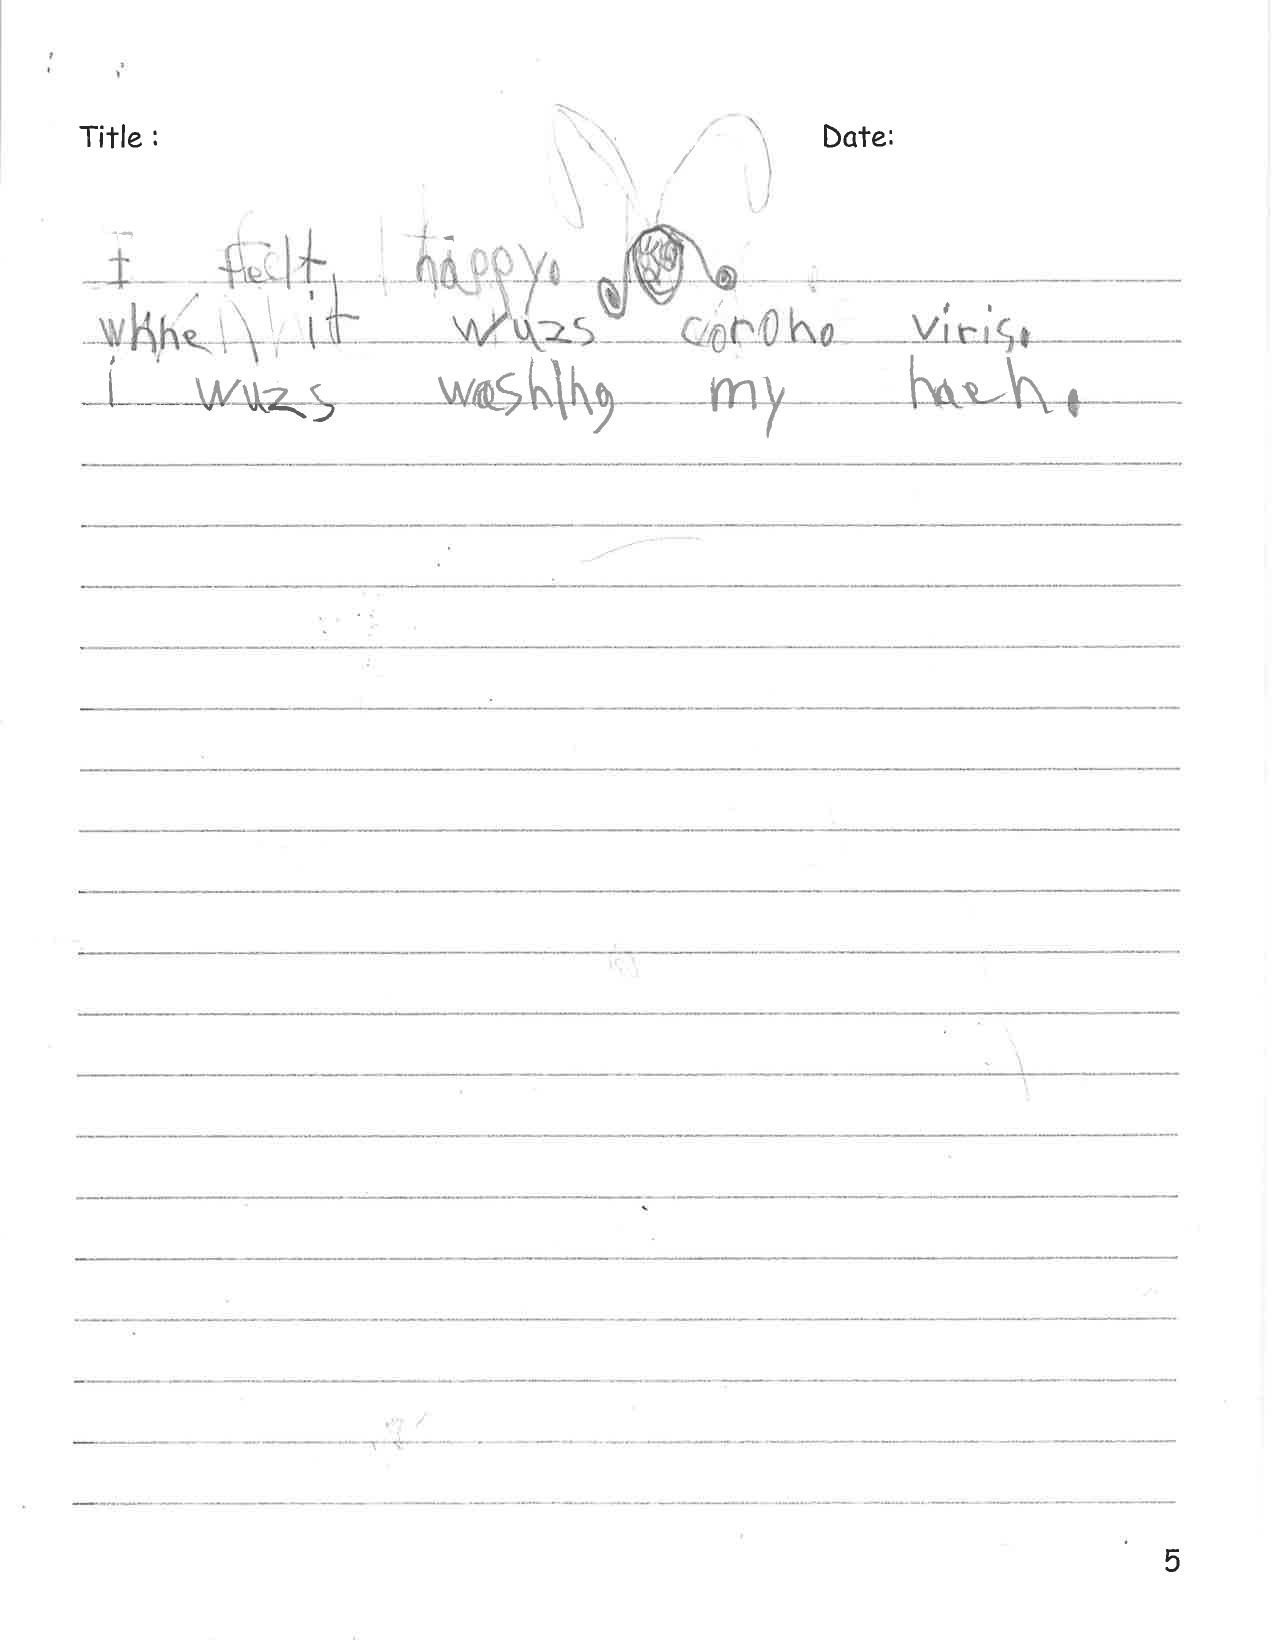 Title : Date:
I fielt happy.
whhe it wuzs coroho viris.
i wuzs washihg my haeh.
5